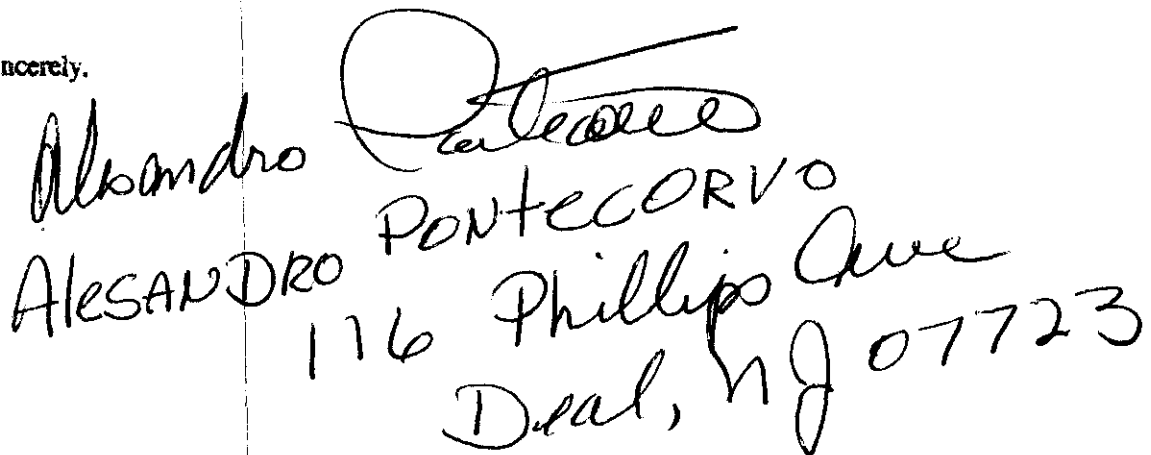 ncerely.
Alesandro Pontecorvo
ALeSANDRO PONteCORVO
116 Phillips Ave
Deal, NJ 07723